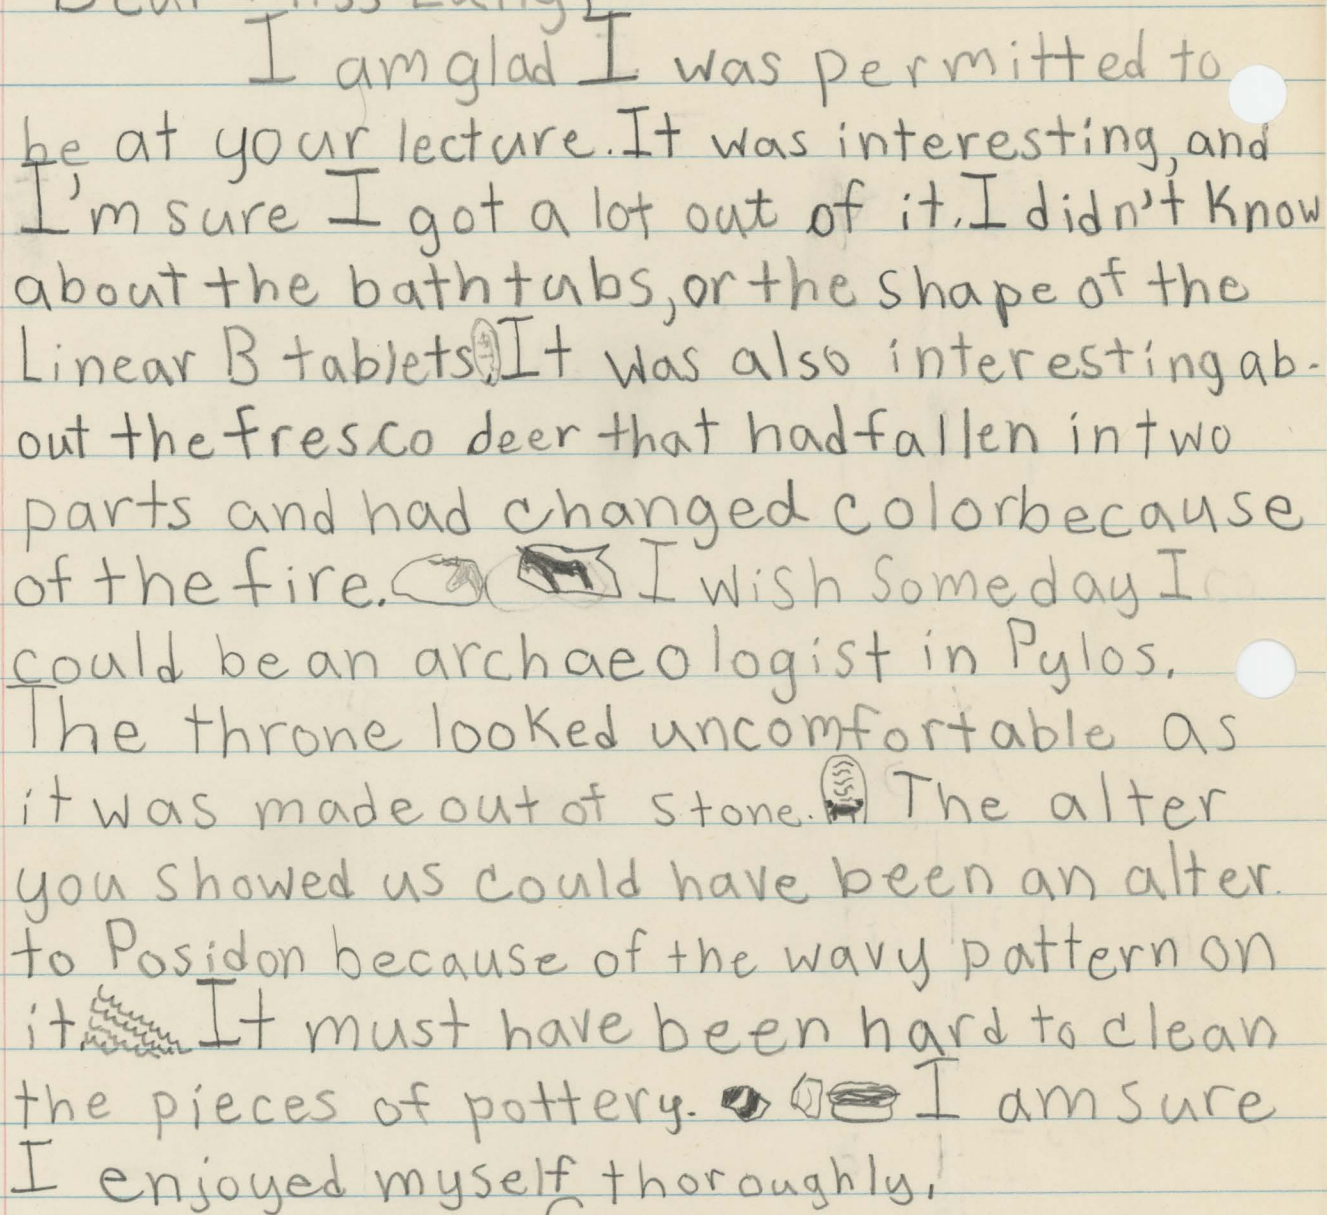 Dear Miss Lang,
I am glad I was permitted to
be at your lecture. It was interesting, and
I'm sure I got a lot out of it. I didn't know
about the bathtubs, or the shape of the
Linear B tablets. It was also interesting ab-
out the fresco deer that had fallen in two
parts and had changed color because
of the fire. I wish someday I
could be an archaeologist in Pylos.
The throne looked uncomfortable as
it was made out of stone. The alter
you showed us could have been an alter
to Posidon because of the wavy pattern on
it. It must have been hard to clean
the pieces of pottery. I am sure
I enjoyed myself thoroughly.